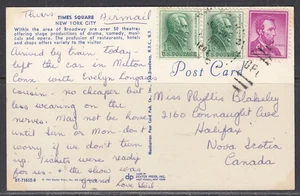 Tues.
Airmail
TIMES SQUARE
NEW YORK CITY
Within the area of Broadway are over 50 theatres
offering stage productions of drama, comedy, musi-
cals and opera. The profusion of restaurants, hotels
and shops offers variety to the visitor.
Arrived by train today -
left the car in Milton
Conn with Evelyn Longa
cousin - no cheaper but
less wearing on the
nerves. May not be home
until Sun or Mon - don't
worry if we don't turn
up. Tickets were ready
for us - & the show was
grand
Love
DT-71655-B
Post Card
Miss Phyllis Blakeley
2160 Connaught Ave.
Halifax
Nova Scotia
Canada